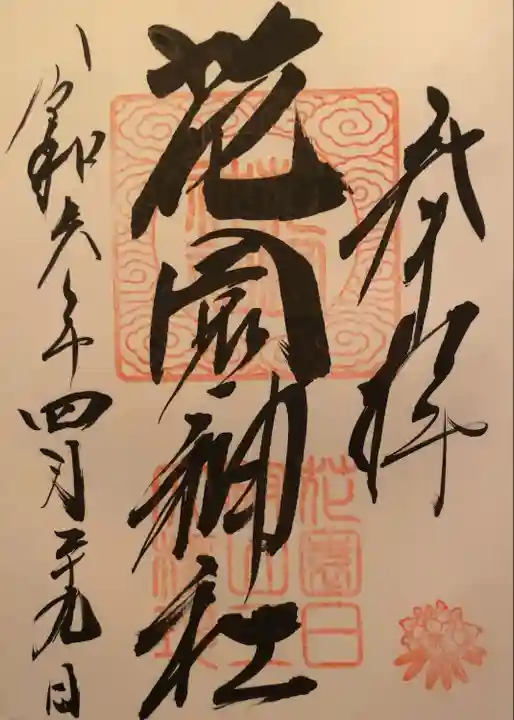 奉拝
花園神社
令和六年四月二十九日
花園日